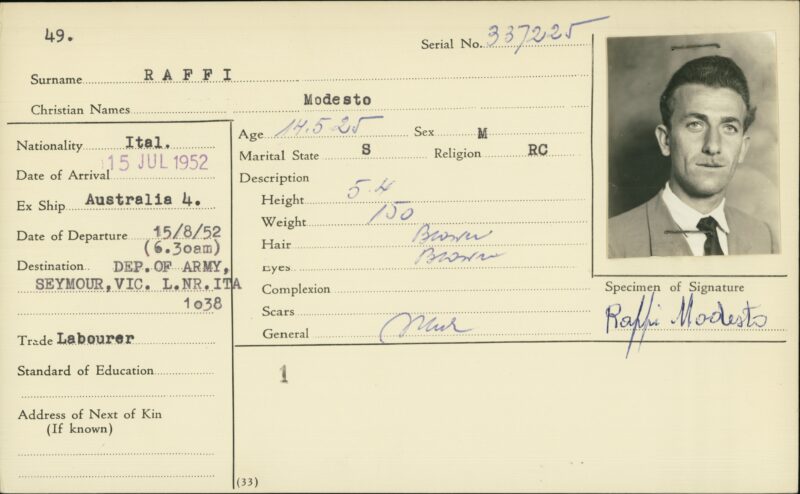 49.
Serial No. 337225
Surname RAFFI
Christian Names Modesto
Nationality Ital.
Date of Arrival 15 JUL 1952
Ex Ship Australia 4.
Date of Departure 15/8/52
(6.30am)
Destination DEP.OF ARMY,
SEYMOUR,VIC. L.NR.ITA
1038
Trade Labourer
Standard of Education
Address of Next of Kin
(If known)
Age 14.5.25 Sex M
Marital State S Religion RC
Description
Height 5.4
Weight 150
Hair Brown
Eyes Brown
Complexion
Scars
General
1
(33)
Specimen of Signature
Raffi Modesto